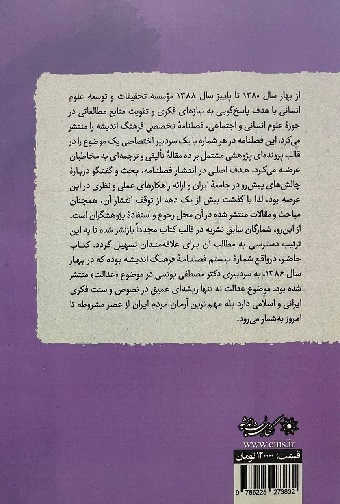 از بهار سال ۱۳۸۰ تا پاییز سال ۱۳۸۸ مؤسسه تحقیقات و توسعه علوم
انسانی با هدف پاسخ‌گویی به نیازهای فکری و تقویت منابع مطالعاتی در
حوزهٔ علوم انسانی و اجتماعی، فصلنامهٔ تخصصی فرهنگ اندیشه را منتشر
می‌کرد. این فصلنامه در هر شماره با یک سردبیر اختصاصی یک موضوع را در
قالب پرونده‌ای پژوهشی مشتمل بر ده مقالهٔ تألیفی و ترجمه‌ای به مخاطبان
عرضه می‌کرد. هدف اصلی در انتشار فصلنامه، بحث و گفتگو دربارهٔ
چالش‌های پیش‌رو در جامعهٔ ایران و ارائه راهکارهای عملی و نظری در این
عرصه بود، لذا با گذشت بیش از یک دهه از توقف انتشار آن، همچنان
مباحث و مقالات منتشر شده در آن محل رجوع و استفادهٔ پژوهشگران است.
از این‌رو، شمارگان سابق نشریه در قالب کتاب مجدداً بازنشر شده تا به این
ترتیب دسترسی به مطالب آن برای علاقه‌مندان تسهیل گردد. کتاب
حاضر، درواقع شمارهٔ بیستم فصلنامهٔ فرهنگ اندیشه بوده که در بهار
سال ۱۳۸۶ به سردبیری دکتر مصطفی یونسی در موضوع «عدالت» منتشر
شده بود. موضوع عدالت نه تنها ریشه‌ای عمیق در نصوص و سنت فکری
ایرانی و اسلامی دارد بلکه مهم‌ترین آرمان مردم ایران از عصر مشروطه تا
امروز به‌شمار می‌رود.
قیمت: ۱۲۰۰۰۰ تومان